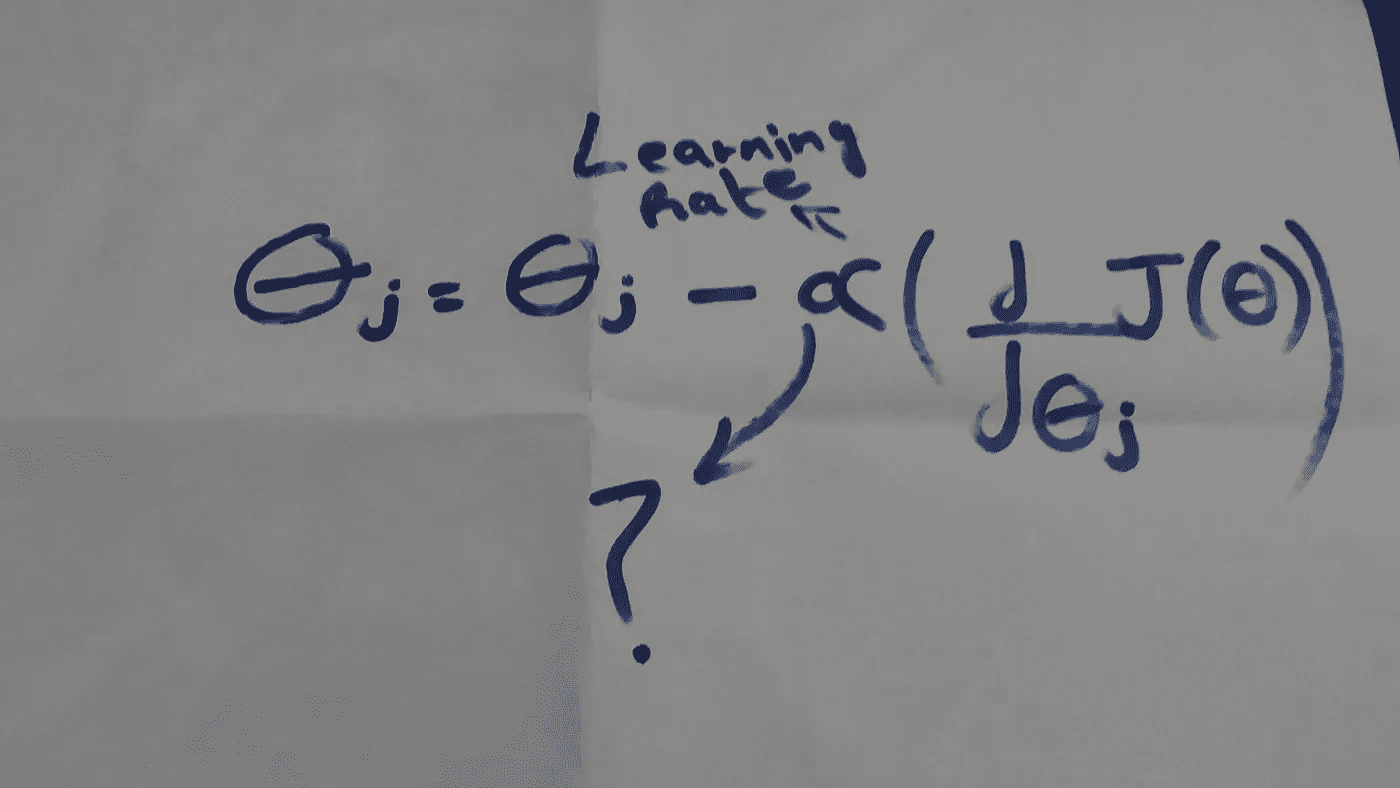 Learning
Rate
θj = θj - α ( d J(θ) )
dθj
?